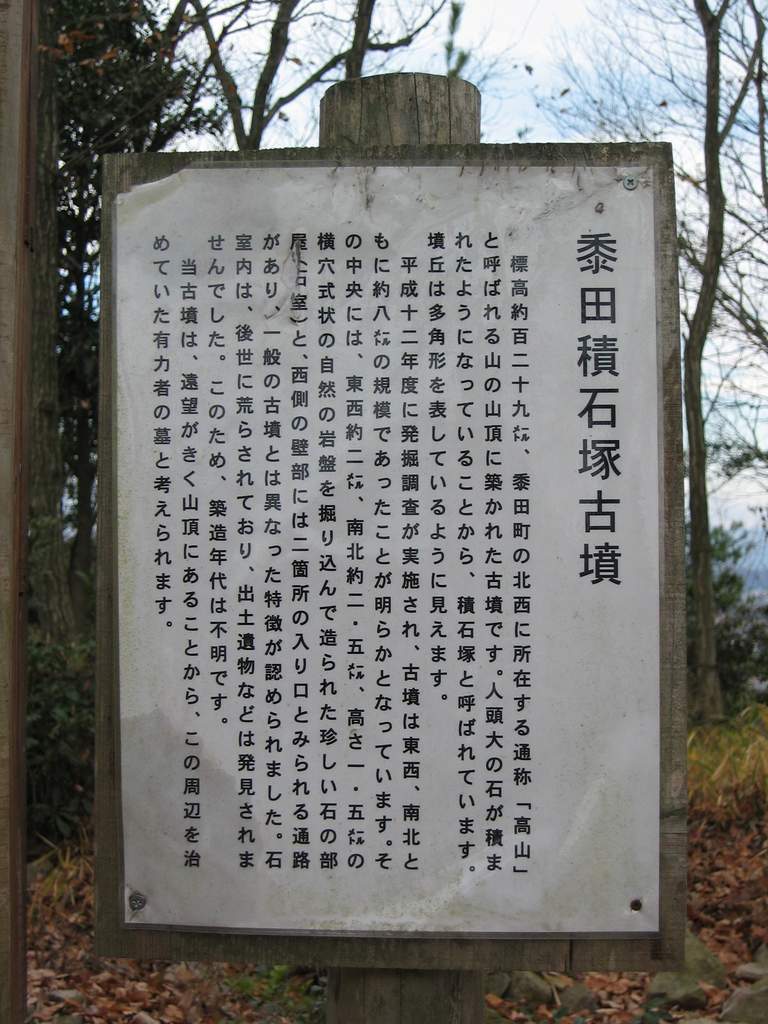 黍田積石塚古墳
標高約百二十九㍍、黍田町の北西に所在する通称「高山」
と呼ばれる山の山頂に築かれた古墳です。人頭大の石が積ま
れたようになっていることから、積石塚と呼ばれています。
墳丘は多角形を表しているように見えます。
平成十二年度に発掘調査が実施され、古墳は東西、南北と
もに約八㍍の規模であったことが明らかとなっています。そ
の中央には、東西約二㍍、南北約二・五㍍、高さ一・五㍍の
横穴式状の自然の岩盤を掘り込んで造られた珍しい石の部
屋(石室)と、西側の壁部には二箇所の入り口とみられる通路
があり、一般の古墳とは異なった特徴が認められました。石
室内は、後世に荒らされており、出土遺物などは発見されま
せんでした。このため、築造年代は不明です。
当古墳は、遠望がきく山頂にあることから、この周辺を治
めていた有力者の墓と考えられます。